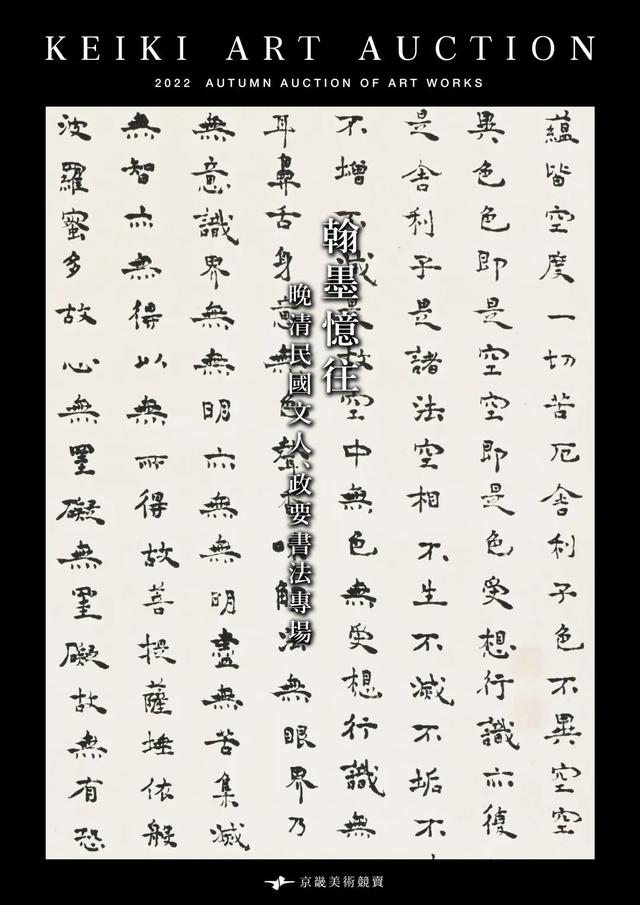 KEIKI ART AUCTION
2022 AUTUMN AUCTION OF ART WORKS
翰墨憶往
晚清民國文人、政要書法專場
蘊皆空度一切苦厄舍利子色不異空空
異色色即是空空即是色受想行識亦復
是舍利子是諸法空相不生不滅不垢不
不增不減是故空中無色無受想行識無
耳鼻舌身意無色聲香味觸法無眼界乃
無意識界無無明亦無無明盡無苦集滅
無智亦無得以無所得故菩提薩埵依般
波羅蜜多故心無罣礙無罣礙故無有恐
京畿美術競賣